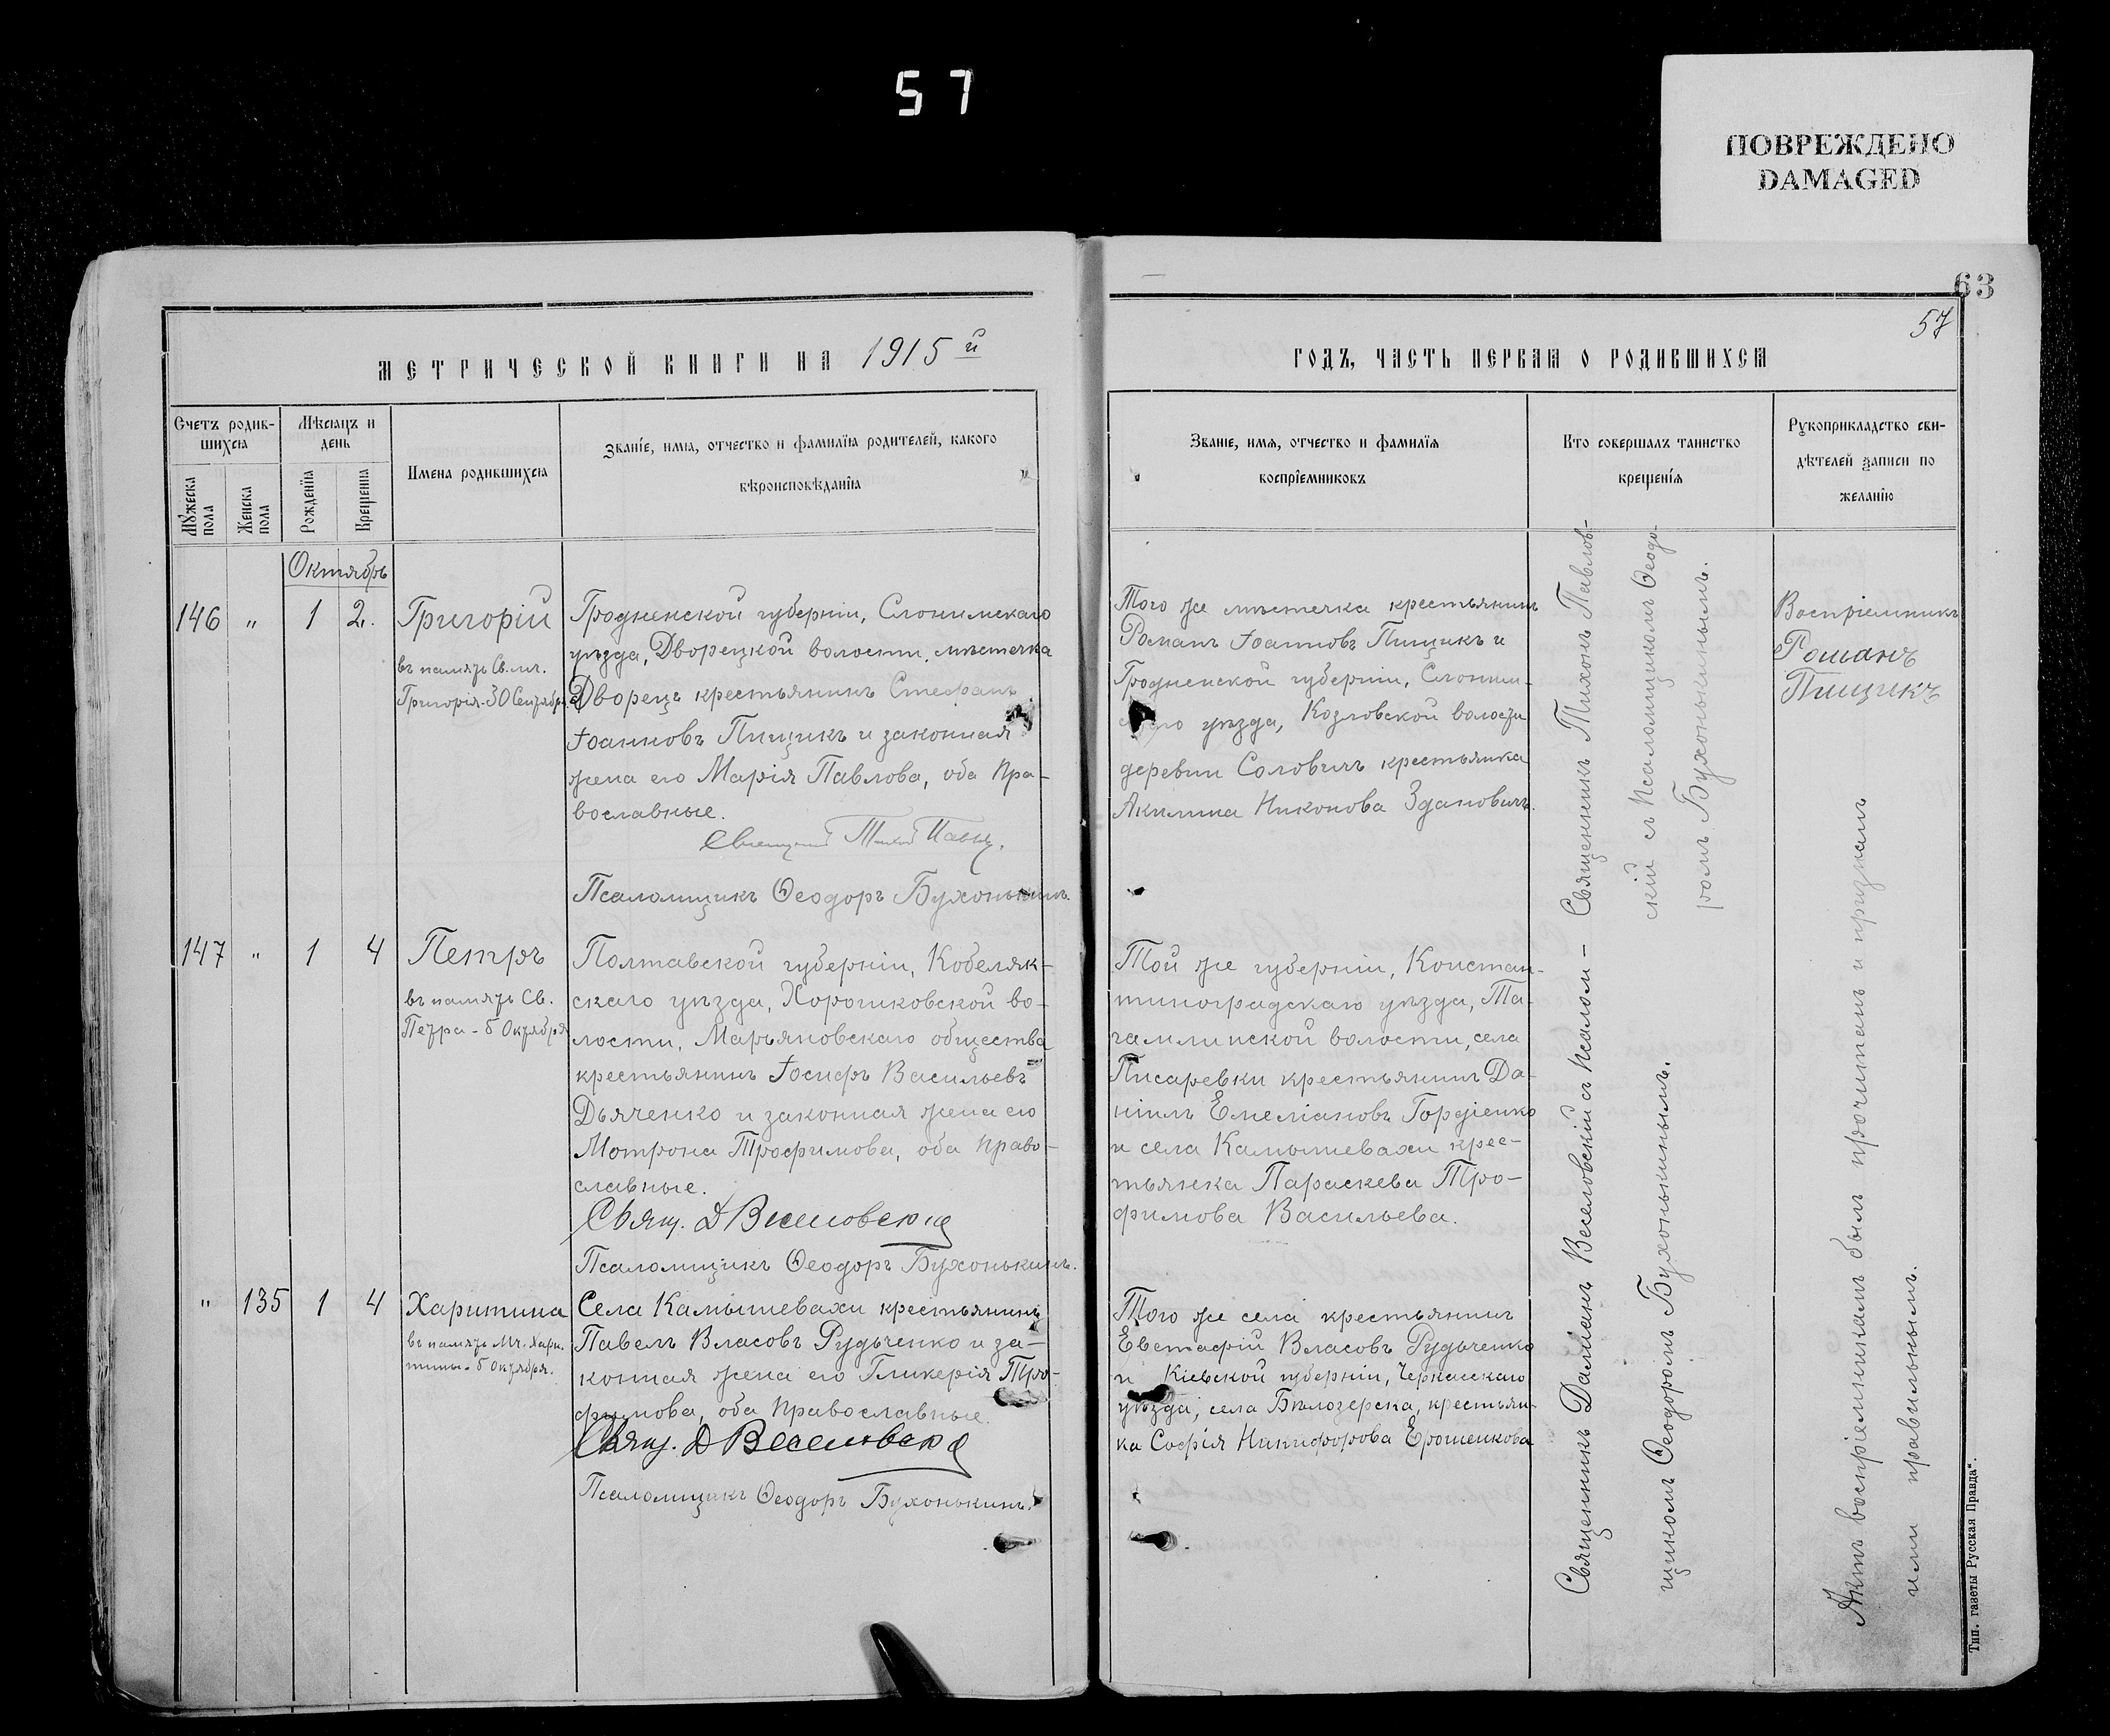 57
ПОВРЕЖДЕНО
DAMAGED
63
57
МЕТРИЧЕСКОЙ КНИГИ НА 1915й
ГОДЪ, ЧАСТЬ ПЕРВАЯ О РОДИВШИХСЯ
Счетъ родив-
шихся
Мужеска пола
Женска пола
Мѣсяцъ и
день
Рожденїя
Крещенїя
Имена родившихся
Званїе, имя, отчество и фамилїя родителей, какого
вѣроисповѣданїя
Званїе, имя, отчество и фамилїя
воспрїемниковъ
Кто совершалъ таинство
крещенїя
Рукоприкладство сви-
дѣтелей записи по
желанїю
Октябрь
146 " 1 2.
Григорій
въ память Св. мч.
Григорія - 30 Сентября.
Гродненской губерніи, Слонимскаго
уѣзда, Дворецкой волости, мѣстечка
Дворецъ крестьянинъ Стефанъ
Іоанновъ Пищикъ и законная
жена его Марія Павлова, оба Пра-
вославные.
Псаломщикъ Ѳеодоръ Бухонькинъ.
Того же мѣстечка крестьянинъ
Романъ Іоанновъ Пищикъ и
Гродненской губерніи, Слоним-
скаго уѣзда, Козловской волости
деревни Соловичъ крестьянка
Акилина Никонова Здановичъ.
Священникъ Тихонъ Павлов-
скій съ Псаломщикомъ Ѳеодо-
ромъ Бухонькинымъ.
Воспріемникъ
Романъ
Пищикъ
147 " 1 4
Петръ
въ память Св.
Петра - 5 Октября
Полтавской губерніи, Кобеляк-
скаго уѣзда, Хорошковской во-
лости, Марьяновскаго общества
крестьянинъ Іосифъ Васильевъ
Дьяченко и законная жена его
Мотрона Трофимова, оба право-
славные.
Свящ. Д Веселовскій
Псаломщикъ Ѳеодоръ Бухонькинъ.
Той же губерніи, Констан-
тиноградскаго уѣзда,
волости, села
Писаревки крестьянинъ Да-
ніилъ Емеліановъ Гордіенко
и села Камышевахи крес-
тьянка Параскева Тро-
фимова Васильева.
" 135 1 4
Харитина
въ память Мч. Хари-
тины - 5 Октября.
Села Камышевахи крестьянинъ
Павелъ Власовъ Рудьченко и за-
конная жена его Гликерія Тро-
фимова, оба Православные.
Свящ. Д Веселовскій
Псаломщикъ Ѳеодоръ Бухонькинъ.
Того же села крестьянинъ
Евстафій Власовъ Рудьченко
и Кіевской губерніи, Черкасскаго
уѣзда, села Бѣлозерска, крестьян-
ка Софія Никифорова Ерошенкова
Священникъ Даміанъ Веселовскій съ Псалом-
щикомъ Ѳеодоромъ Бухонькинымъ.
Актъ воспріемникамъ былъ прочитанъ и признанъ
ими правильнымъ.
Тип. газеты Русская Правда".